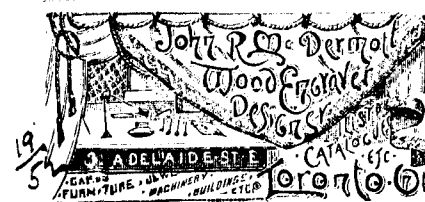 John R. McDermott
Wood Engraver
Designer
CATALOGUE
ETC.
19/5 ADELAIDE ST E
CARDS
FURNITURE MACHINERY BUILDINGS ETC
Toronto